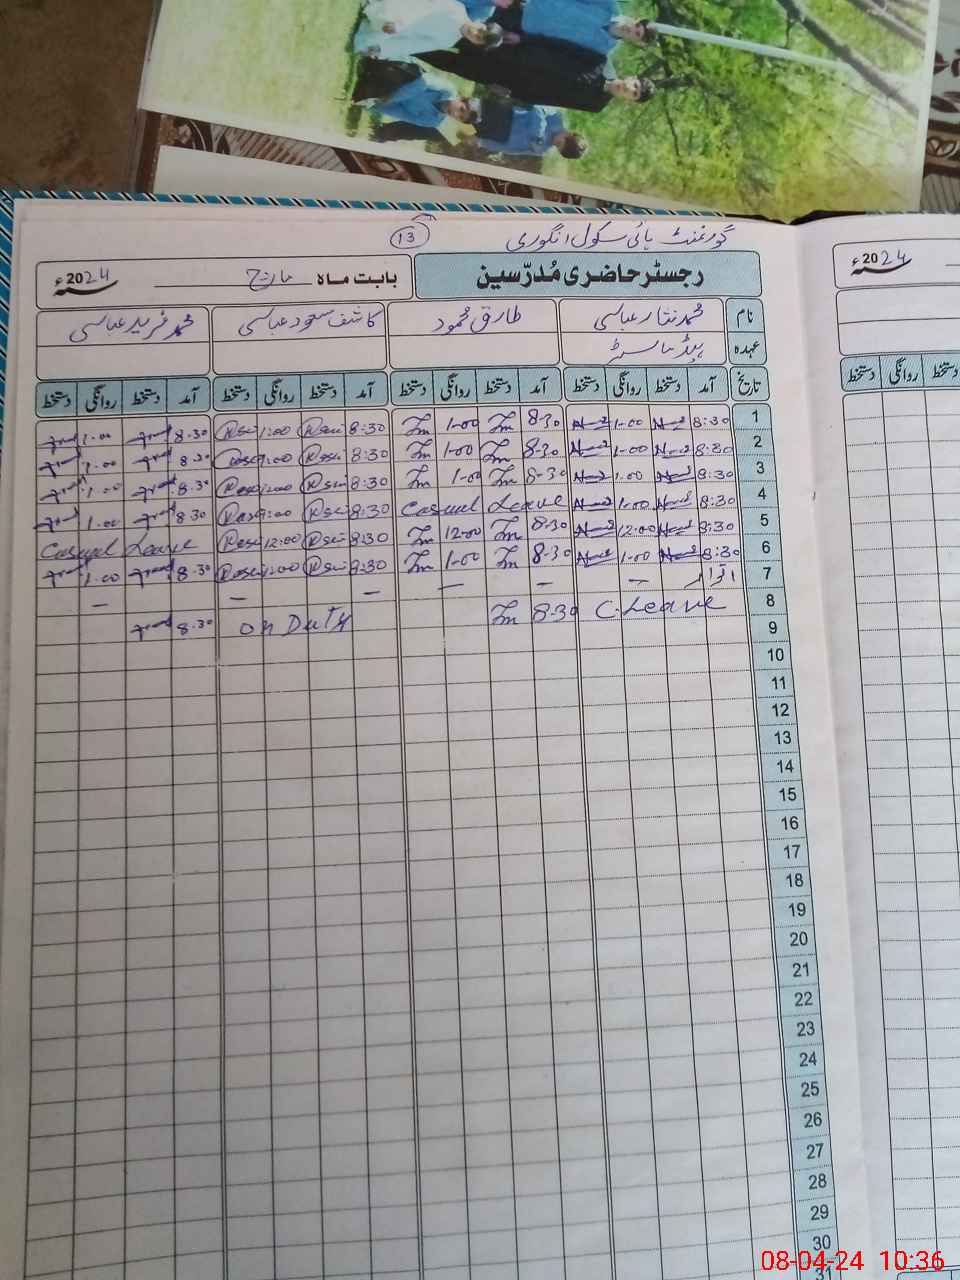 گورنمنٹ ہائی سکول انگوری
13
رجسٹر حاضری مُدرّسین
بابت ماہ مارچ 2024ء
2024ء
نام محمد نثار عباسی طارق محمود کاشف سعود عباسی محمد فرید عباسی
عہدہ ہیڈ ماسٹر
تاریخ آمد دستخط روانگی دستخط آمد دستخط روانگی دستخط آمد دستخط روانگی دستخط آمد دستخط روانگی دستخط
دستخط روانگی دستخط
1 8:30 1-00 8-30 1-00 8:30 1:00 8.30 1.00
2 8:30 1-00 8-30 1-00 8:30 1:00 8.30 1.00
3 8:30 1.00 8-30 1-00 8:30 1:00 8.30 1.00
4 8:30 1-00 Casual Leave 8:30 1:00 8.30 1.00
5 8:30 12:00 8-30 12-00 8:30 12:00 Casual Leave
6 8:30 1-00 8-30 1-00 8:30 1:00 8.30 1.00
7 اتوار — — — — — —
8 C. Leave 8-30 on Duty 8.30
9
10
11
12
13
14
15
16
17
18
19
20
21
22
23
24
25
26
27
28
29
30
31
08-04-24 10:36